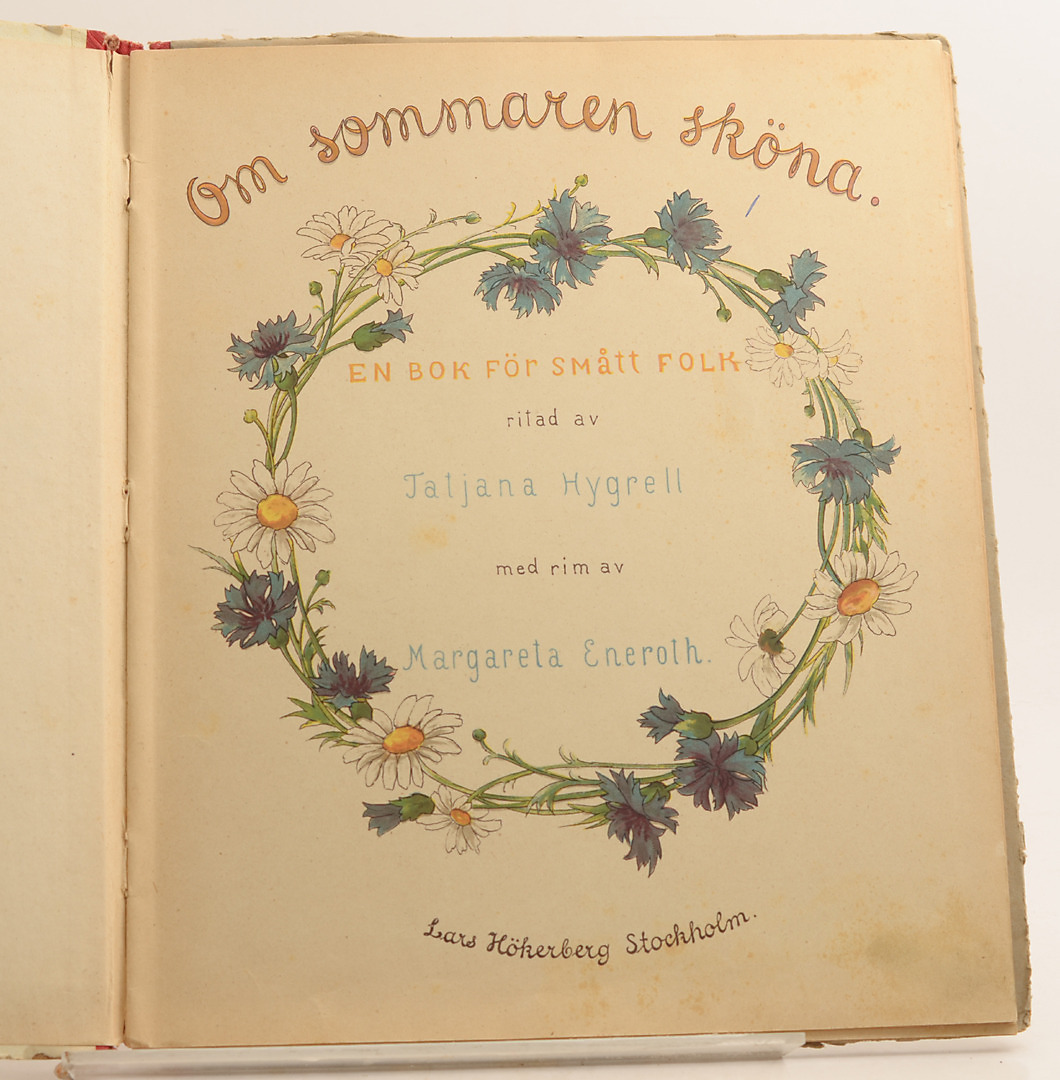 Om sommaren sköna.
EN BOK FÖR SMÅTT FOLK
ritad av
Tatjana Hygrell
med rim av
Margareta Eneroth.
Lars Hökerberg Stockholm.